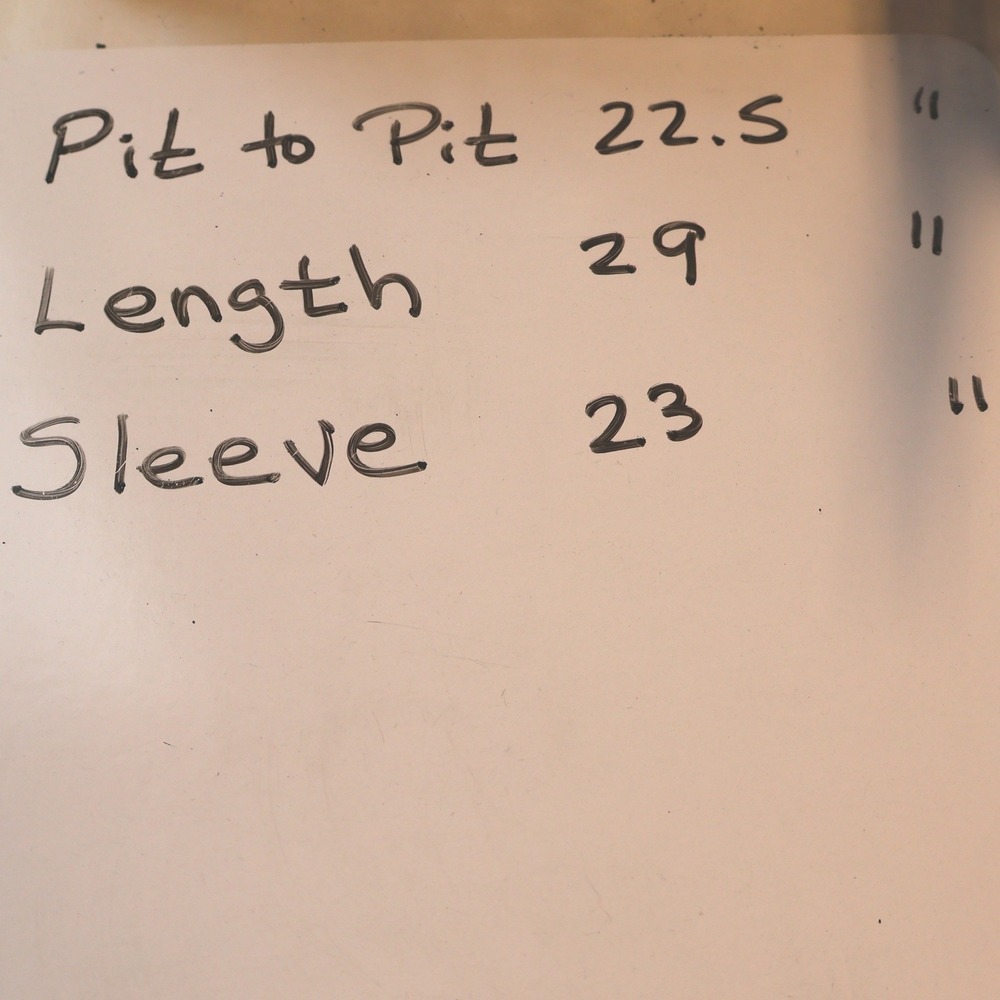 Pit to Pit 22.5 "
Length 29 "
Sleeve 23 "